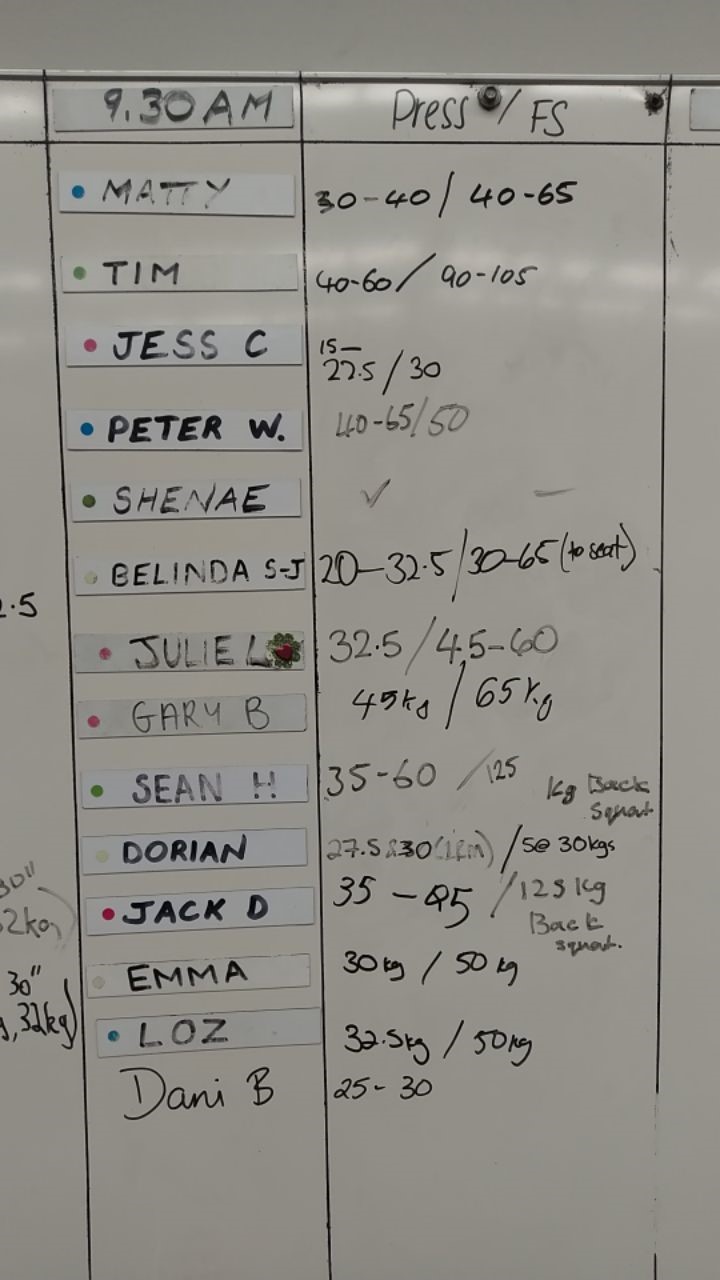 9.30AM Press / FS
MATTY 30-40 / 40-65
TIM 40-60 / 90-105
JESS C 15-
27.5 / 30
PETER W. 40-65/50
SHENAE ✓ —
BELINDA S-J 20-32.5/30-65 (to seat)
2.5
JULIE L 32.5 / 45-60
GARY B 45kg / 65kg
SEAN H 35-60 / 125 kg Back
Squat
DORIAN 27.5 &30(1rm) / 5@ 30kgs
30"
JACK D 35 - 95 / 125 kg
2kg Back
squat.
EMMA 30kg / 50kg
30"
LOZ 32.5kg / 50kg
, 32kg)
Dani B 25- 30